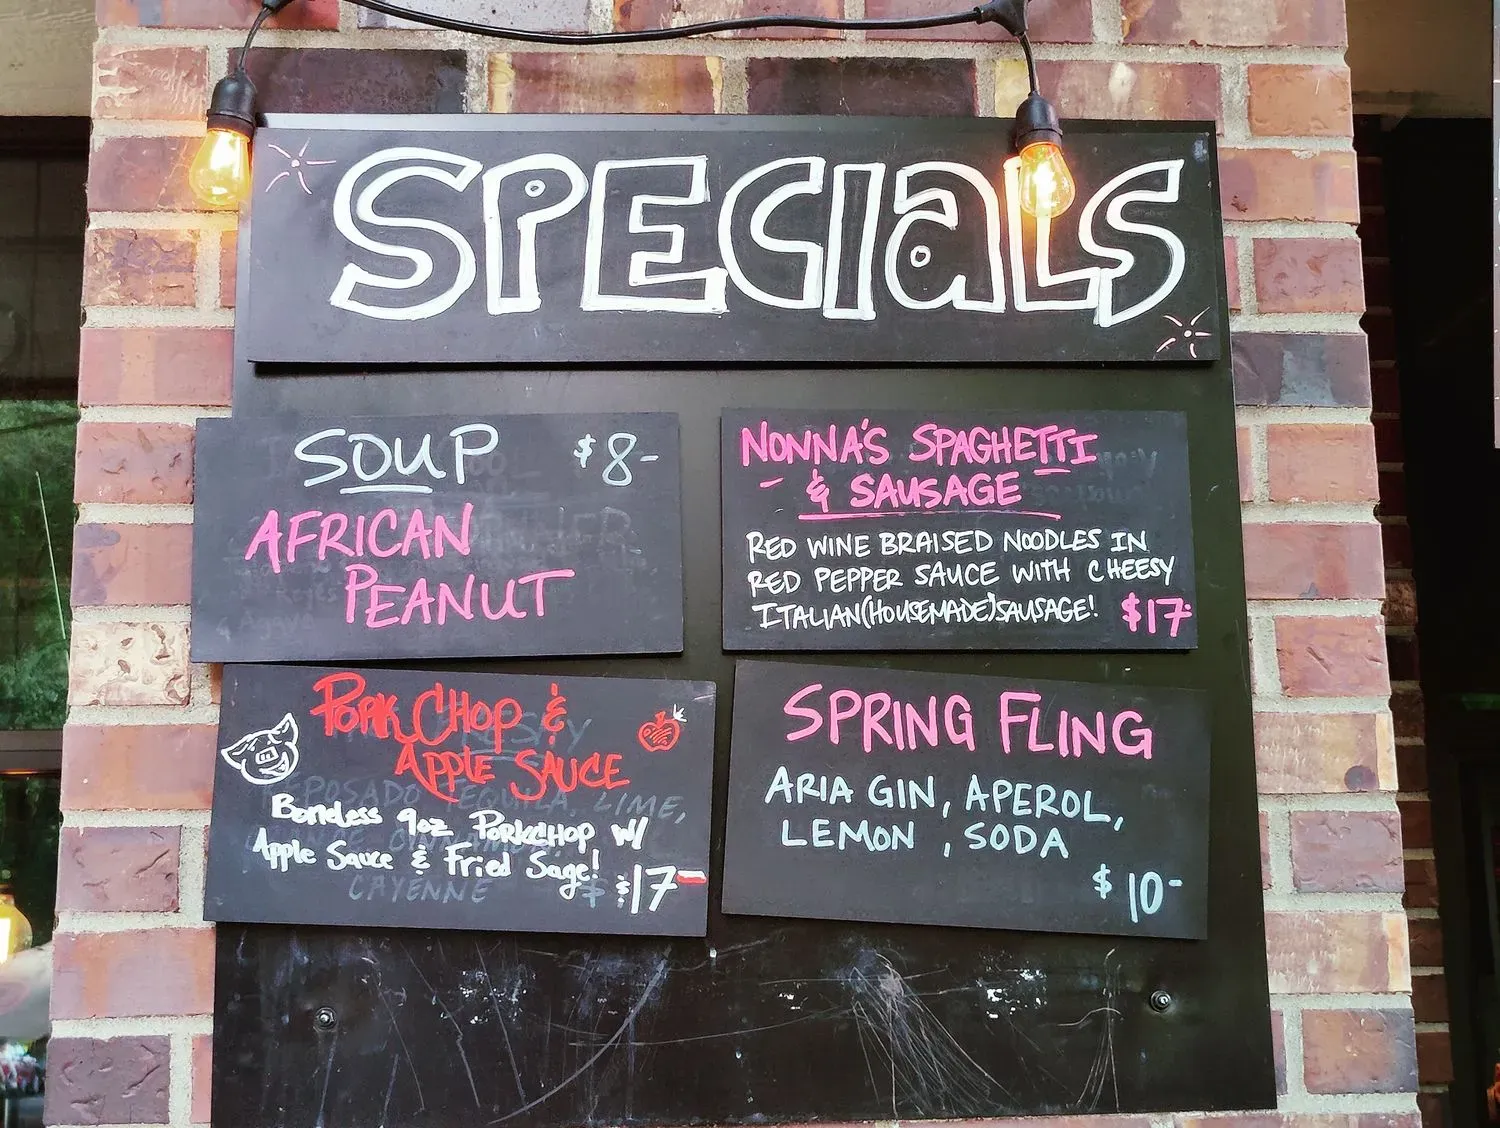 SPECIALS
SOUP $8-
AFRICAN
PEANUT
NONNA'S SPAGHETTI
& SAUSAGE
RED WINE BRAISED NOODLES IN
RED PEPPER SAUCE WITH CHEESY
ITALIAN(HOUSEMADE)SAUSAGE! $17-
Pork Chop &
Apple Sauce
Boneless 9oz Porkchop w/
Apple Sauce & Fried Sage!
$17-
REPOSADO TEQUILA, LIME,
CAYENNE
SPRING FLING
ARIA GIN, APEROL,
LEMON, SODA
$10-